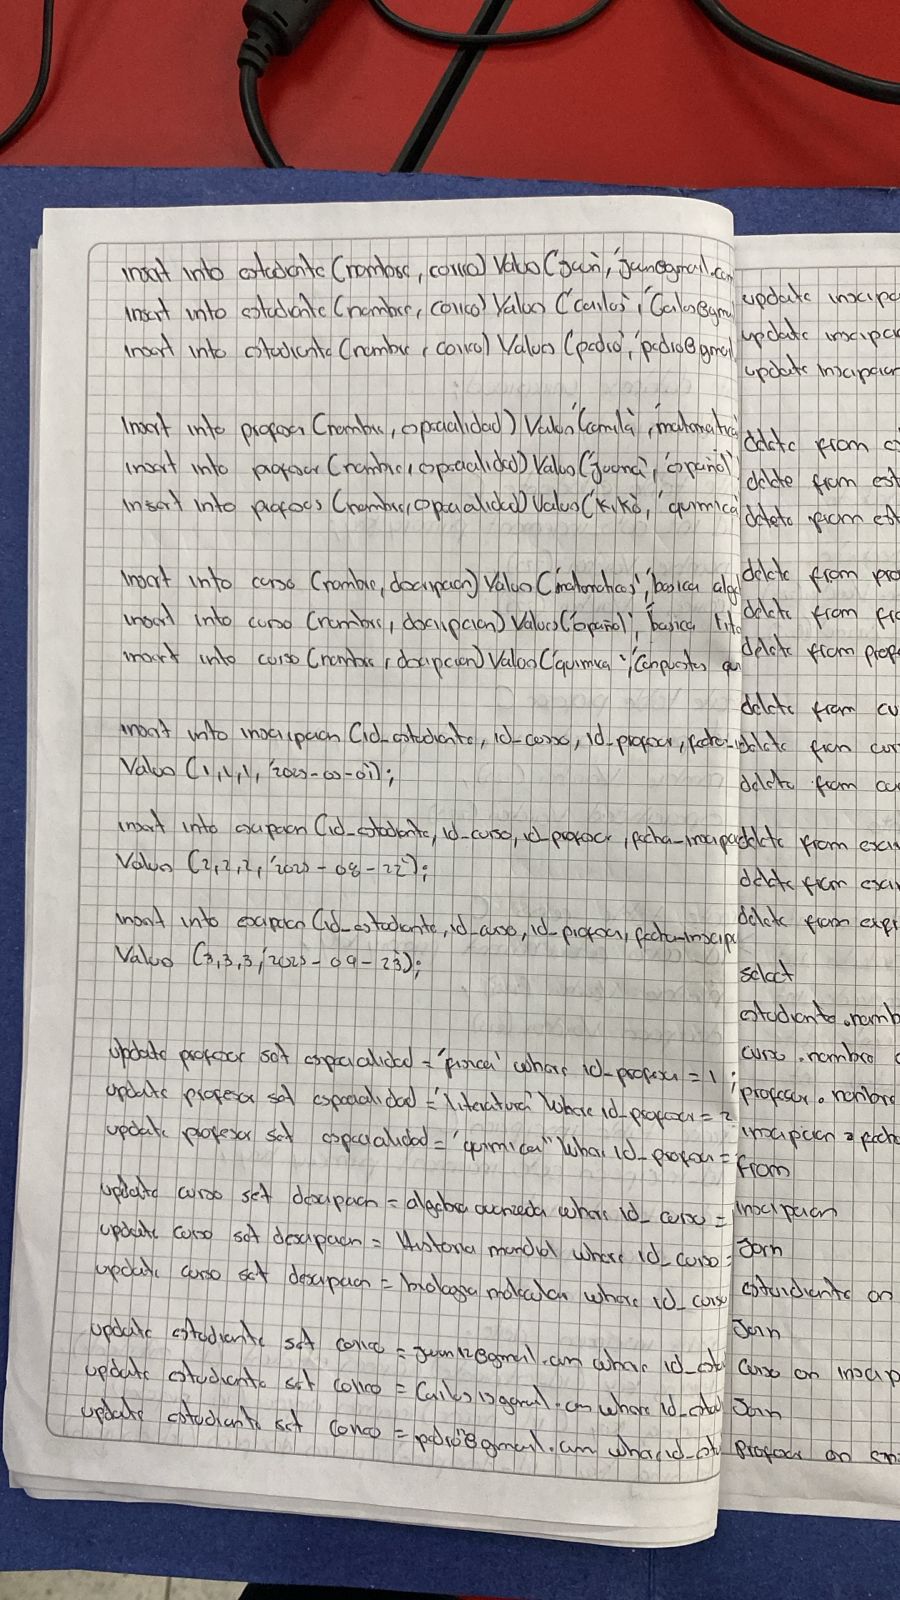 insert into estudiante (nombre, correo) Values ('juan', 'juan@gmail.com
insert into estudiante (nombre, correo) Values ('carlos', 'Carlos@gmai
insert into estudiante (nombre, correo) Values ('pedro', 'pedro@gmail
insert into profesor (nombre, especialidad) Values ('camila', 'matematica
insert into profesor (nombre, especialidad) Values ('juana', 'español'
insert into profesor (nombre, especialidad) Values ('kiko', 'quimica
insert into curso (nombre, descripcion) Values ('matematicas', 'basica alge
insert into curso (nombre, descripcion) Values ('español', 'basica lite
insert into curso (nombre, descripcion) Values ('quimica', 'Compuestos qu
insert into inscripcion (id_estudiante, id_curso, id_profesor, fecha-i
Values (1,1,1, '2023-03-01');
insert into (id_estudiante, id_curso, id_profesor, fecha_inscripc
Values (2,2,2, '2023-08-22');
insert into (id_estudiante, id_curso, id_profesor, fecha-inscrip
Values (3,3,3, '2023-09-23');
update profesor set especialidad = where id_profesor = 1;
update profesor set especialidad = 'literatura' where id_profesor = 2
update profesor set especialidad = 'quimica' where id_profesor =
update curso set descripcion = algebra avanzada where id_curso =
update curso set descripcion = Historia mundial where id_curso =
update curso set descripcion = biologia molecular where id_curso
update estudiante set correo = juan12@gmail.com where id_estu
update estudiante set correo = where id_estud
update estudiante set correo = where id_estu
update inscripc
update inscripc
update inscripcion
delete from es
delete from est
delete from est
delete from pro
delete from pro
delete from profe
delete from cu
delete from cur
delete from cu
delete from
delete from
delete from
select
estudiante.nomb
curso.nombre
profesor.nombre
inscripcion.fecha
from
inscripcion
Join
estudiante on
Join
Curso on inscrip
Join
Profesor on